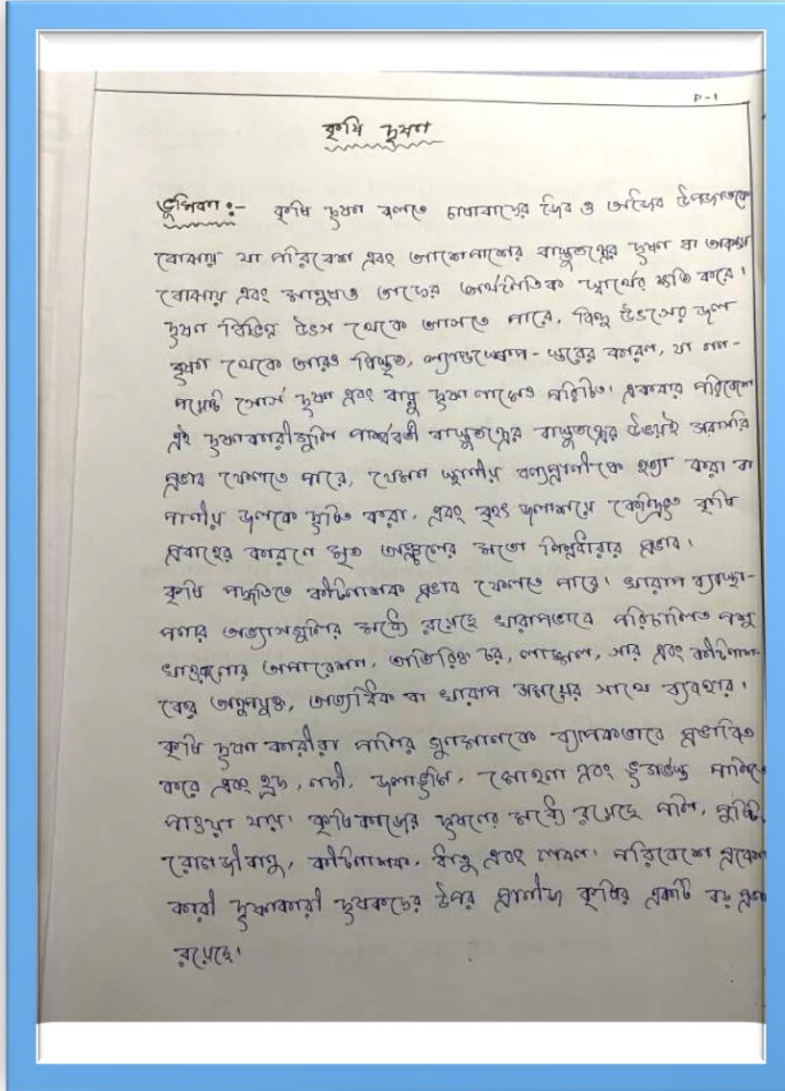 P-1
কৃষি দূষণ
ভূমিকা :- কৃষি দূষণ বলতে চাষাবাদের জৈব ও অজৈব উপজাতকে
বোঝায় যা পরিবেশ এবং আশেপাশের বাস্তুতন্ত্রের দূষণ বা অবক্ষয়
বোঝায় এবং মানুষও তাদের অর্থনৈতিক স্বার্থের ক্ষতি করে।
দূষণ বিভিন্ন উৎস থেকে আসতে পারে, বিন্দু উৎসের জল
দূষণ থেকে আরও বিস্তৃত, ল্যান্ডস্কেপ - স্তরের কারণ, যা নন-
পয়েন্ট সোর্স দূষণ এবং বায়ু দূষণ নামেও পরিচিত। একবার পরিবেশে
এই দূষণকারীগুলি পার্শ্ববর্তী বাস্তুতন্ত্রের বাস্তুতন্ত্রের উভয়ই সরাসরি
প্রভাব ফেলতে পারে, যেমন স্থানীয় বন্যপ্রাণীকে হত্যা করা বা
পানীয় জলকে দূষিত করা, এবং বৃহৎ জলাশয়ে কেন্দ্রীভূত কৃষি
প্রবাহের কারণে মৃত অঞ্চলের মতো নিম্নধারার প্রভাব।
কৃষি পদ্ধতিতে কীটনাশক প্রভাব ফেলতে পারে। খারাপ ব্যবস্থা-
পনার অভ্যাসগুলির মধ্যে রয়েছে খারাপভাবে পরিচালিত পশু
খাওয়ানোর অপারেশন, অতিরিক্ত চর, লাঙ্গল, সার এবং কীটনাশ-
কের অনুপযুক্ত, অত্যধিক বা খারাপ সময়ের সাথে ব্যবহার।
কৃষি দূষণ কারীরা পানির গুণমানকে ব্যাপকভাবে প্রভাবিত
করে এবং হ্রদ, নদী, জলাভূমি, মোহনা এবং ভূগর্ভস্থ পানিতে
পাওয়া যায়। কৃষিকাজের দূষণের মধ্যে রয়েছে পলি, পুষ্টি,
রোগজীবাণু, কীটনাশক, ধাতু এবং লবণ। পরিবেশে প্রবেশ
কারী দূষণকারী দূষকদের উপর প্রাণীজ কৃষির একটি বড়
রয়েছে।